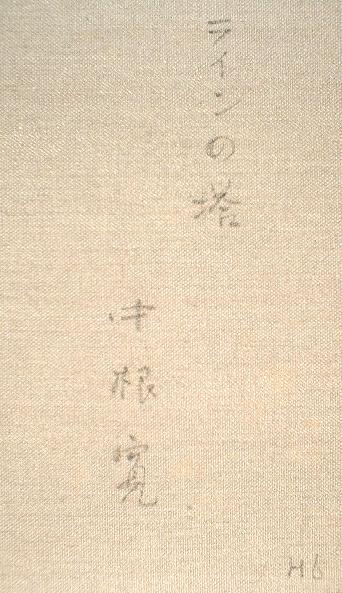 ラインの塔
中根寛
H6